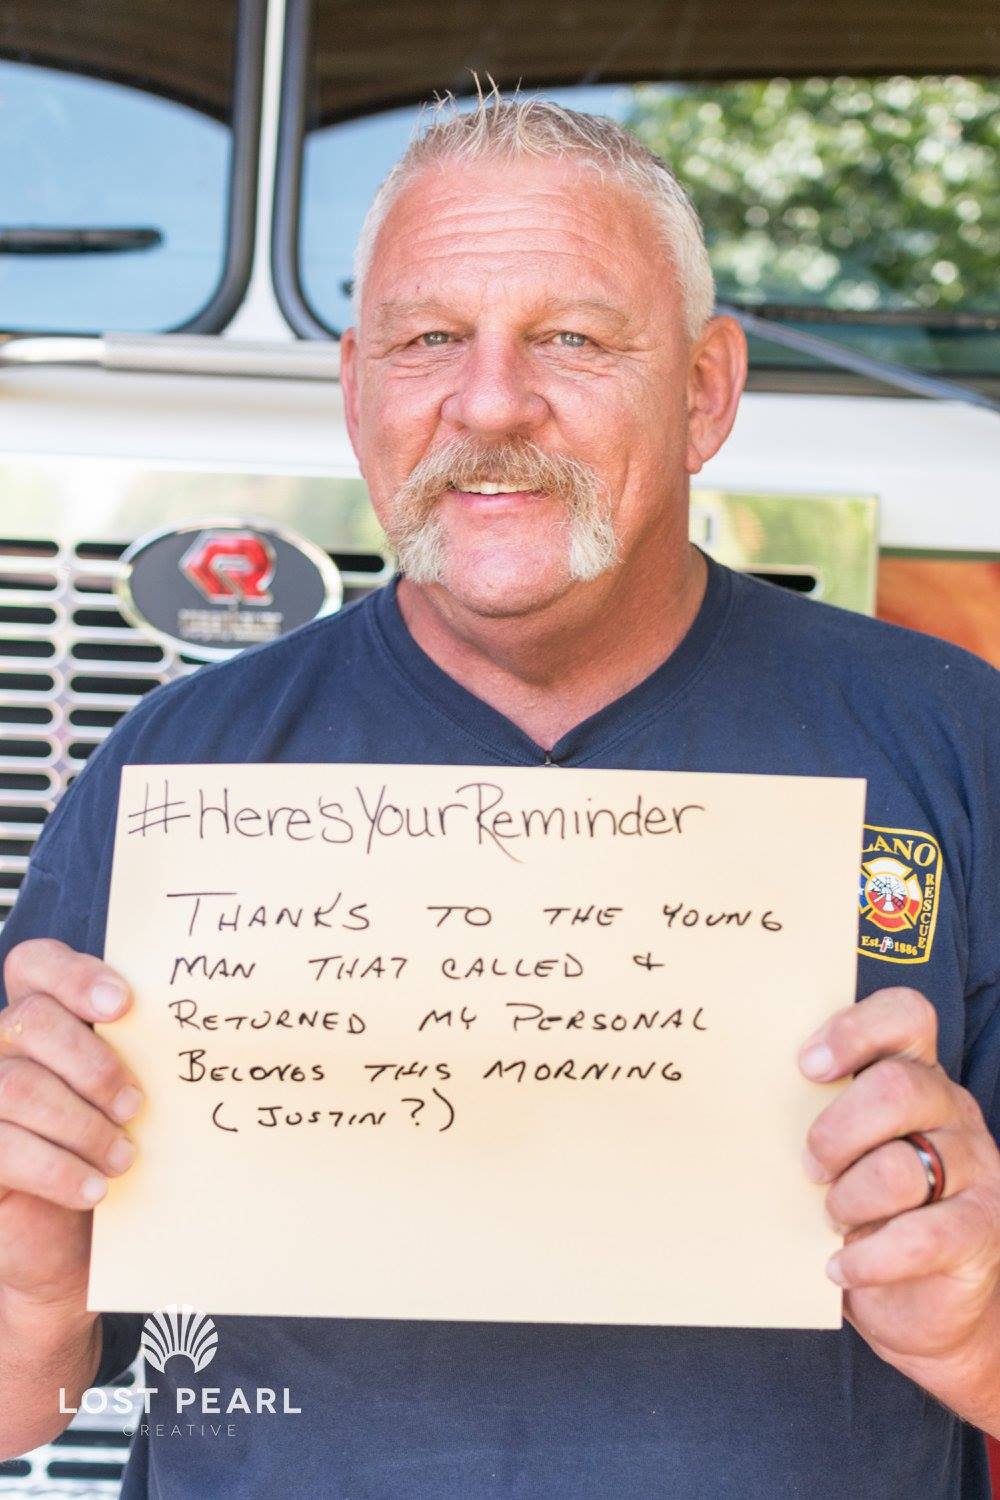 #Here'sYourReminder
THANKS TO THE YOUNG
MAN THAT CALLED &
RETURNED MY PERSONAL
BELONGS THIS MORNING
(JUSTIN?)
LANO
RESCUE
Est. 1886
R
LOST PEARL
CREATIVE